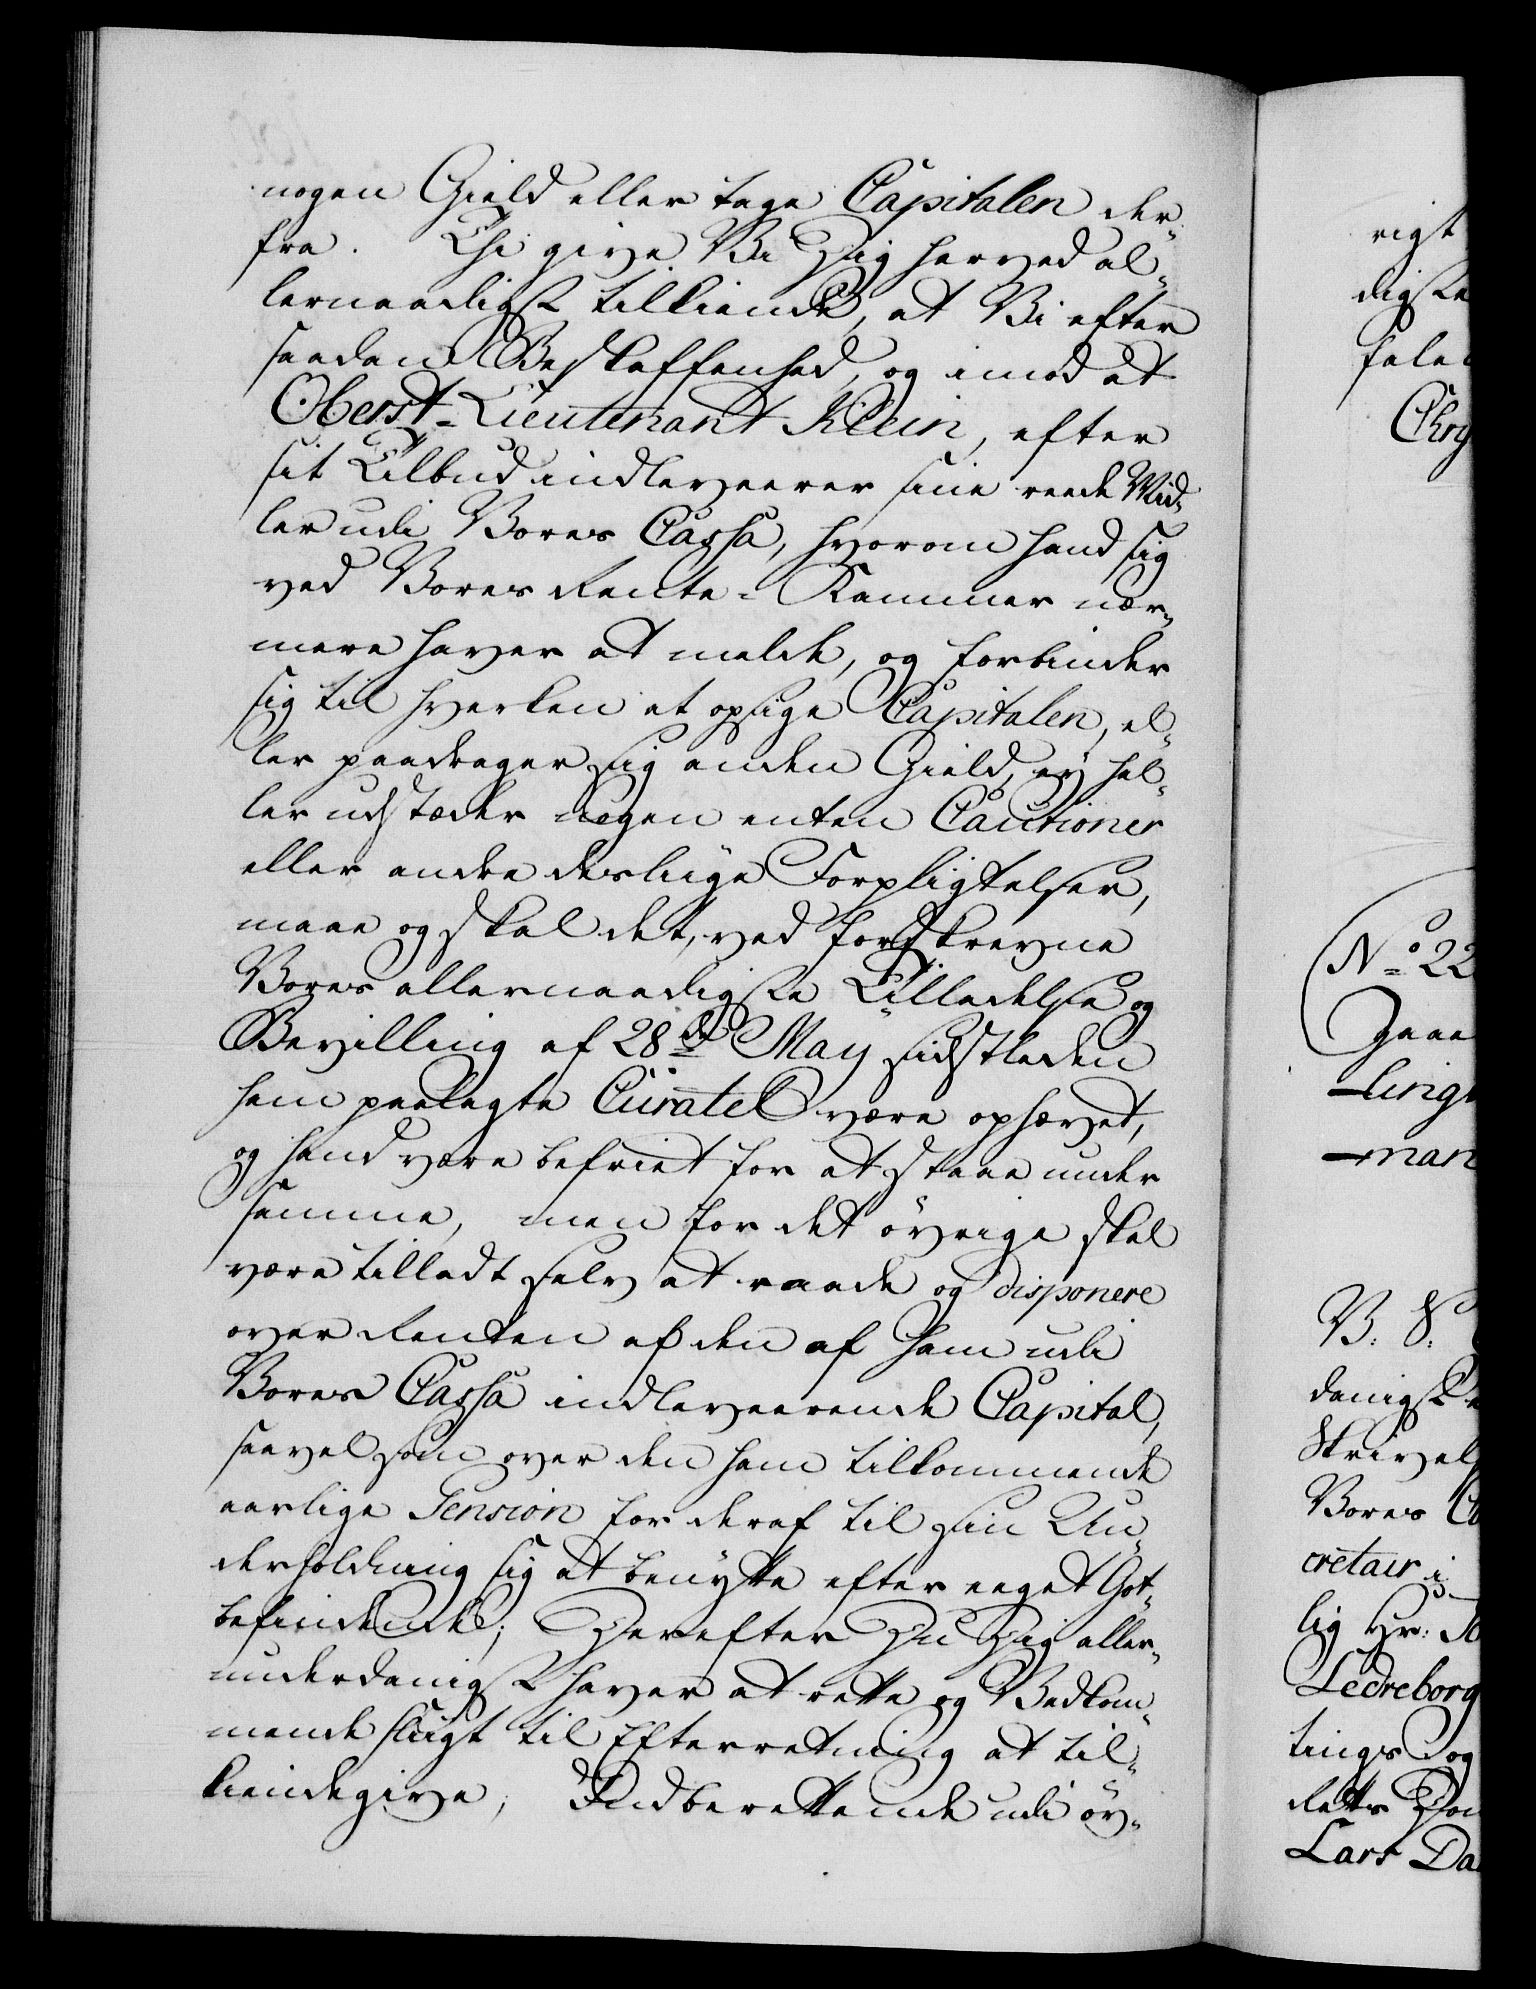 nogen Gield eller tage Capitalen der-
fra. Thi give Vi Dig herved al-
lernaadigst tilkiende, at Vi efter
saadan Beskaffenhed, og imod at
Oberst-Lieutenant Klein, efter
sit Tilbud indleveerer sine reede Mid-
ler udi Vores Cassa, hvorom hand sig
ved Vores Rente-Kammer nær-
mere haver at melde, og forbinder
sig til hverken at opsige Capitalen, el-
ler paadrager sig anden Gield, ey hel-
ler udstæder nogen enten Cautioner
eller andre desliige Forpligtelser,
maae og skal det, ved forskrevne
Vores allernaadigste Tilladelse og
Bevilling af 28de May sidstleden
ham paalagte Curatel være ophævet,
og hand være befriet for at staae under
samme, men for det övrige skal
være tilladt selv at raade og disponere
over Renten af den af ham udi
Vores Cassa indleveerende Capital,
saavelsom over den ham tilkommende
aarlige Pension for deraf til sin Un-
derholdning sig at benytte efter eeget Got-
befindende; Derefter Du Dig aller-
underdanigst haver at rette og Vedkom-
mende sligt til Efterretning at til-
kiendegive, Indberettende udi öv-
rigt
digste
fale
Chr
No 22
Gaae
-ling
-man
V: S:
danigst
Skrivel
Vores C
cretair i
lig Hr:
Ledreborg
tings og
Retts Do
Lars Da